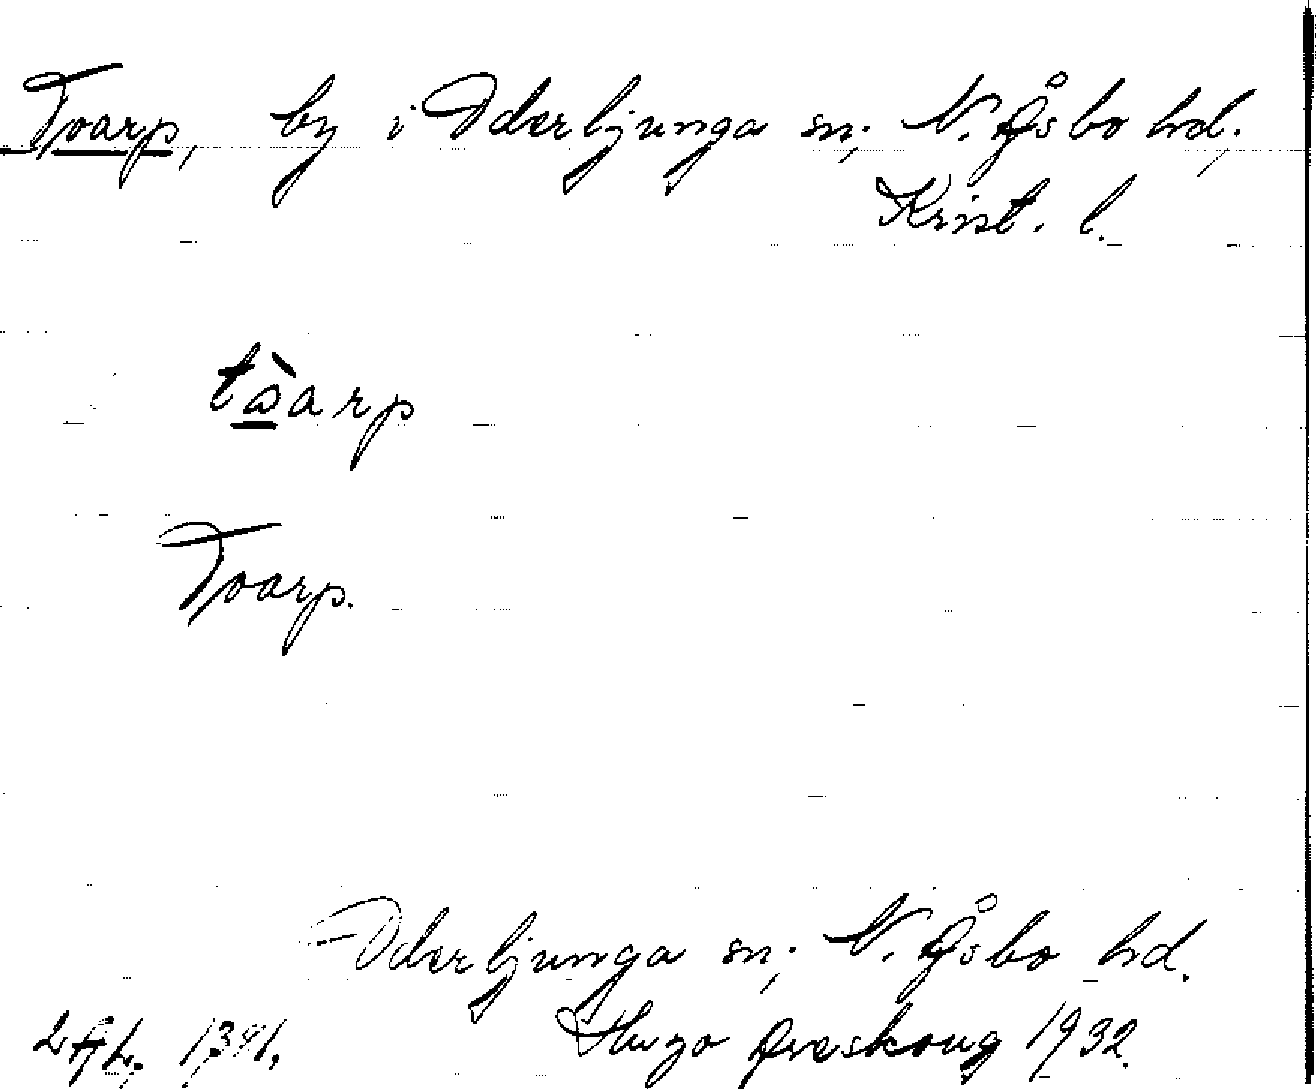 Toarp, by i Oderljunga sn; N. Åsbo hd;
Krist. l.
tàarp
Toarp.
Oderljunga sn; N. Åsbo hd.
Hugo Areskoug 1932.